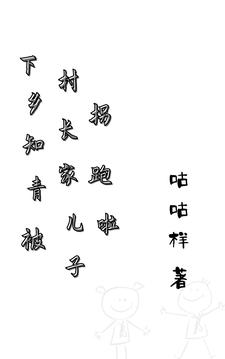 下乡知青被
村长家儿子
拐跑啦
咕咕样 著